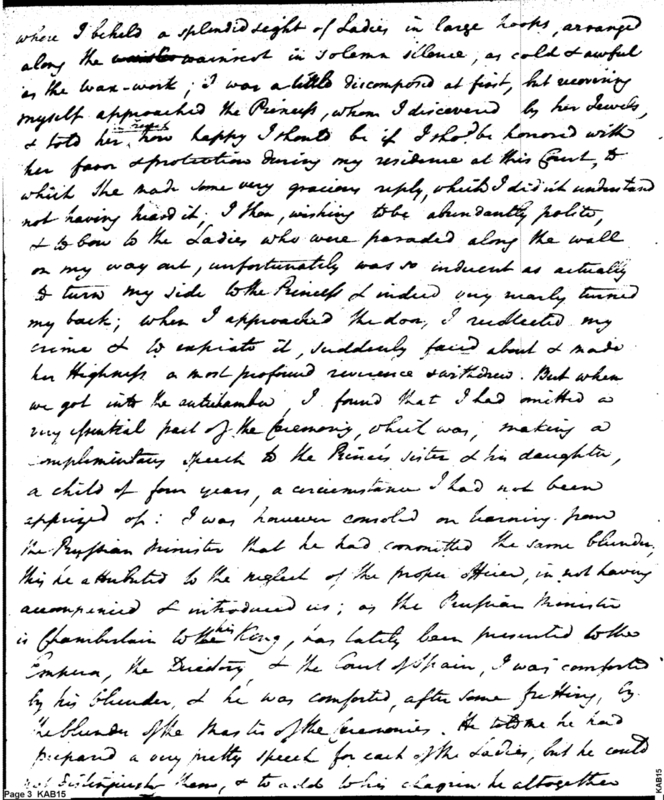 where I beheld a splendid sight of Ladies in large hoops, arranged
along the wainscot in solemn silence, as cold & awful
as the wax-work; I was a little discomposed at first, but recovering
myself approached the Princess, whom I discovered by her Jewels,
& told her, in french how happy I should be if I shod. be honored with
her favor & protection during my residence at this Court, to
which She made some very gracious reply, which I did not understand
not having heard it; I then, wishing to be abundantly polite,
& to bow to the Ladies who were paraded along the wall
on my way out, unfortunately was so indecent as actually
to turn my side to the Princess & indeed very nearly turned
my back; when I approached the door, I recollected my
crime & to expiate it, suddenly faced about & made
her Highness a most profound reverence & withdrew. But when
we got into the antichamber, I found that I had omitted a
very essential part of the Ceremony, which was, making a
complimentary speech to the Princes sister & his daughter,
a child of four years, a circumstance I had not been
apprized of: I was however consoled on learning from
the Prussian Minister that he had committed the same blunder,
this he attributed to the neglect of the proper officer, in not having
accompanied & introduced us; as the Prussian Minister
is Chamberlain to his King, has lately been presented to the
Emperor, the Directory, & the Court of Spain, I was comforted
by his blunder, & he was comforted, after some fretting, by
the blunder of the Master of the Ceremonies. He told me he had
prepared a very pretty speech for each of the Ladies, but he could
not distinguish them, & to add to his chagrin he altogether
Page 3 KAB15
KAB15